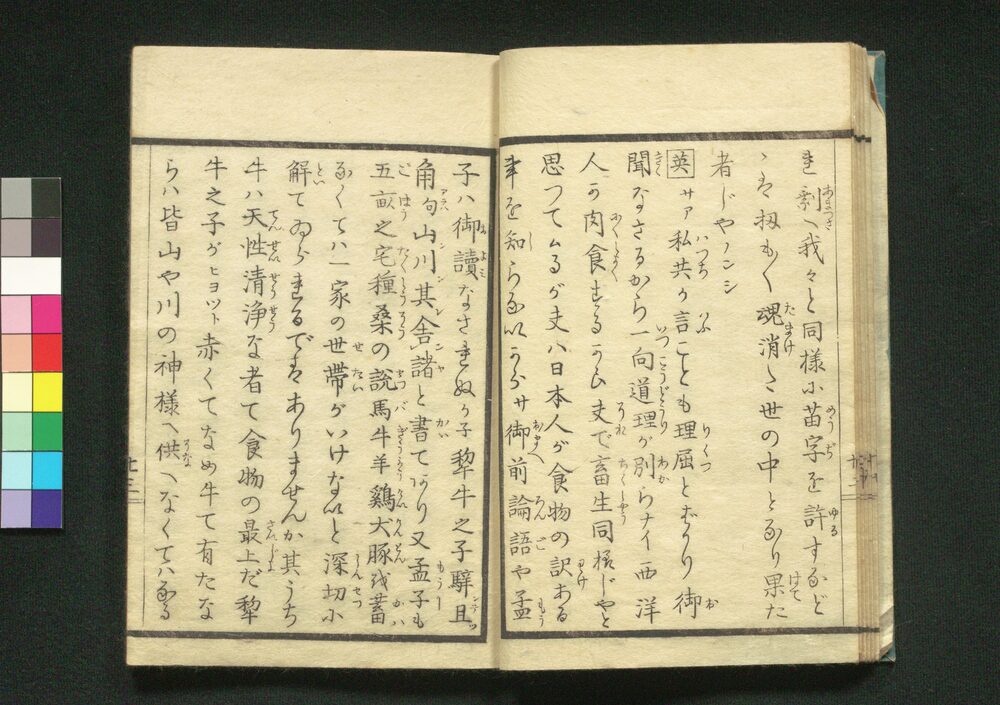 れ剰へ我々と同様に苗字を許するなど
ゝは扨もく魂消た世の中となり果た
者じやノンシ
英 サア私共か言ことも理屈とばかり御
聞なさるから一向道理が別らナイ西洋
人の肉食するから夫で畜生同様じやと
思つてムるが夫ハ日本人が食物の訳ある
事を知らないからサ御前論語や孟
子ハ御讀なされぬか子犂牛之子騂且
角句山川其舎諸と書てあり又孟子も
五畝之宅種桑の説馬牛羊鷄犬豚を蓄
なくてハ一家の世帯がいけないと深切に
解てゐられるではありませんか其うち
牛ハ天性清浄な者て食物の最上だ犂
牛之子がヒヨツト赤くてなめ牛て有たな
らハ皆山や川の神様へ供へなくてハなる
廿三